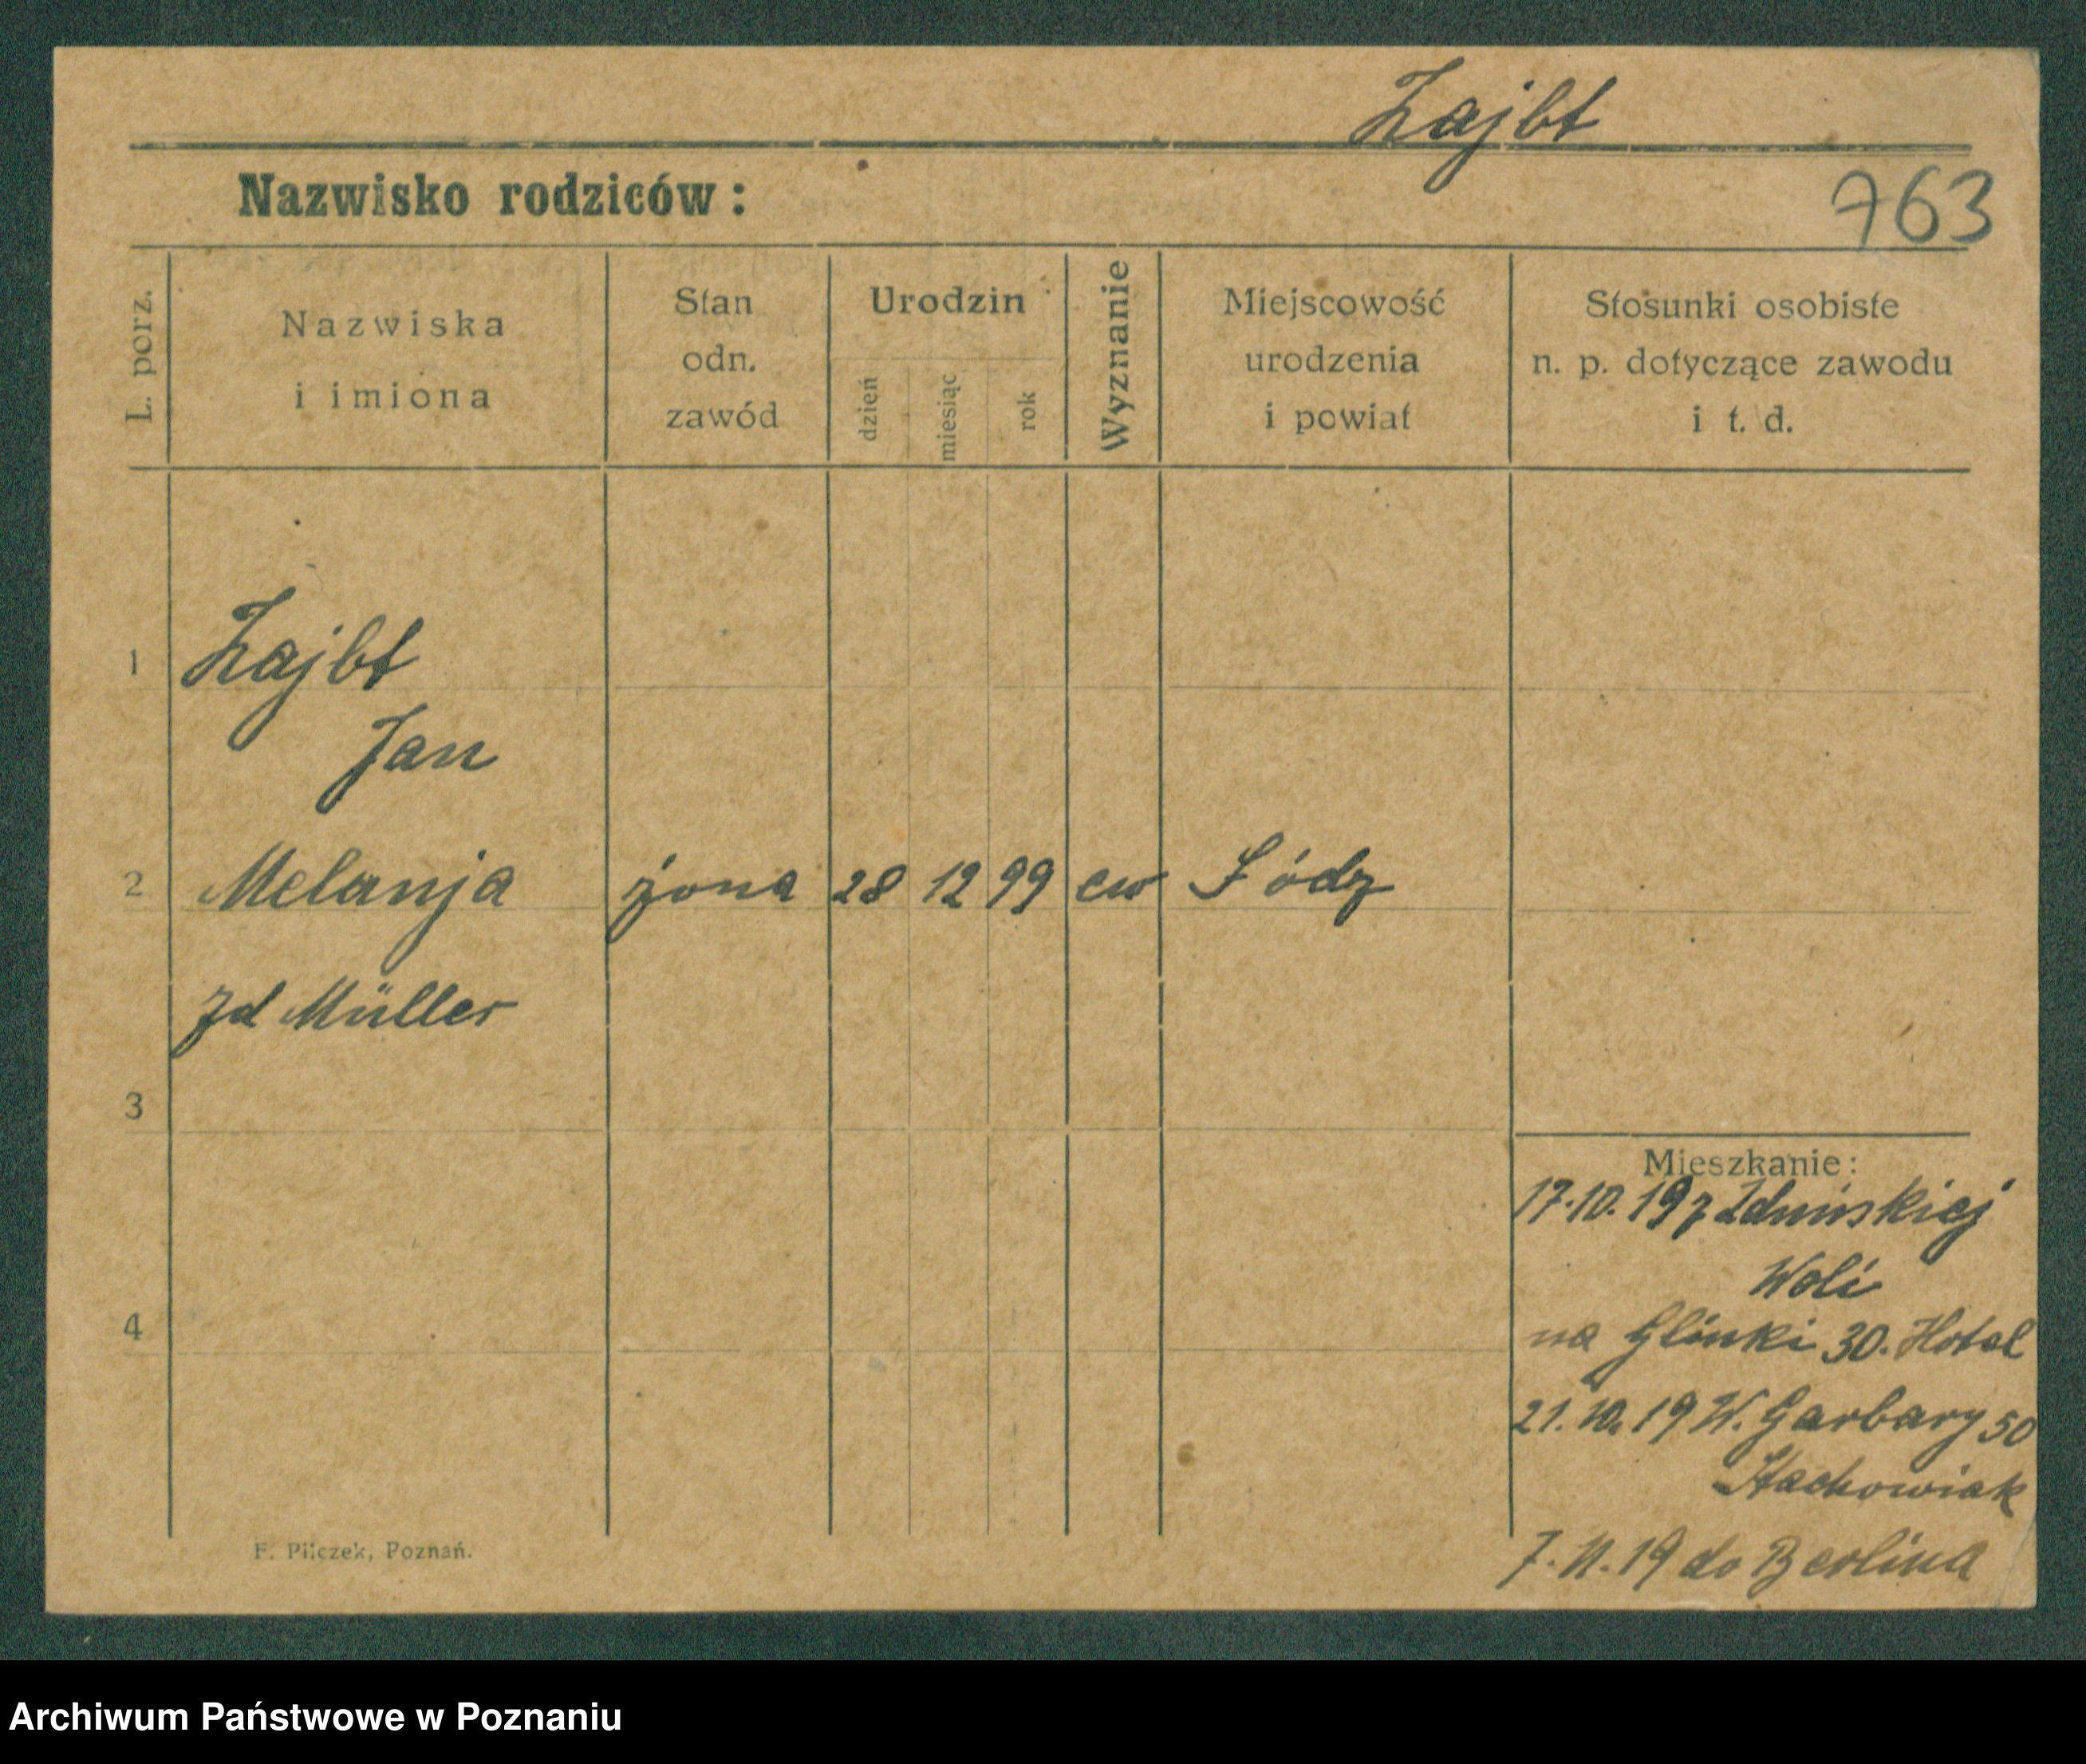 Zajbt
Nazwisko rodziców:
763
L. porz.
Nazwiska
i imiona
Stan
odn.
zawód
Urodzin
dzień
miesiąc
rok
Wyznanie
Miejscowość
urodzenia
i powiat
Stosunki osobiste
n. p. dotyczące zawodu
i t. d.
1 Zajbt
Jan
2 Melanja żona 28 12 99 ew Łódz
zd Müller
3
Mieszkanie:
17.10.19 z Zduńskiej
Woli
4
na Glinki 30. Hotel
21.10.19 W. Garbary 50
Stachowiak
7.11.19 do Berlina
F. Pilczek, Poznań.
Archiwum Państwowe w Poznaniu